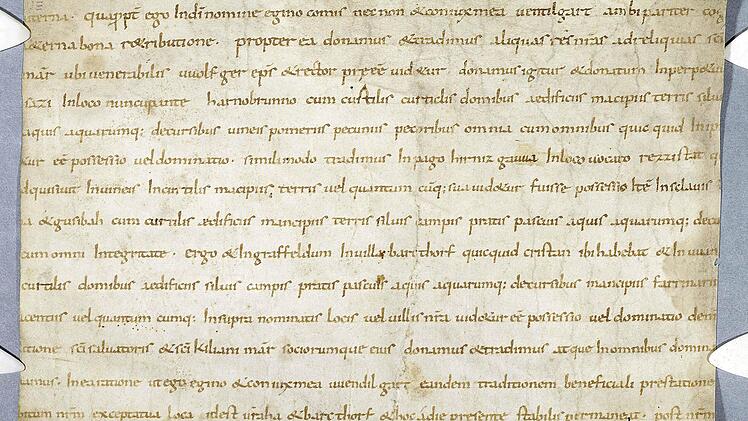 &erna. quapropt ego Indī nomine egino comis nec non & coniux mea uuentilgart ambi pariter cog
& eterna bona r&ributione. propter ea donamus & tradimus aliquas res nrās ad reliquias scī
mar̄ ubi uenerabilis uuolfger ep̄s & rector pręeē uid&ur donamus igitur & donatum In perp&
sazi In loco nuncupante harnobrunno cum curtilis curticlis domibus aedificiis mācipiis terris siluis
aquis aquarumq; decursibus uineis pometiis pecuniis pecoribus omnia cum omnibus quic quid In ip
&ur eē possessio uel dominatio. simili modo tradimus In pago horiz gauua In loco uocato rezzistat q
dquisiuit In uineis In curtilis mācipiis, terris uel quantum cūq; sua uid&ur fuisse possessio Itē In sclauis
a & gusibah cum curtilis aedificiis mancipiis terris siluis campis pratis pascuis aquis aquarumq; decu
cum omni Integritate. ergo & In graffeldum In uilla barcthorf quic quid cristan ibi habebat & In uuan
curtilis domibus aedificiis siluis campis pratis pascuis aquis aquarumq; decursibus mancipiis farinariis
acentiis uel quantum cunq; In supra nominatis locis uel uillis nrā uid&ur eē possessio uel dominatio dem
atione scī saluatoris & scī kiliani mar̄ sociorumque eius donamus & tradimus atque In omnibus domina
amus. In ea ratione ut ego egino & coniux mea uuendilgart eandem traditionem beneficiali prestatione
bitum nrm̄ exceptaţua loca idest uraha & barcthorf & hoc a die presente stabilis permaneat. post nrm̄